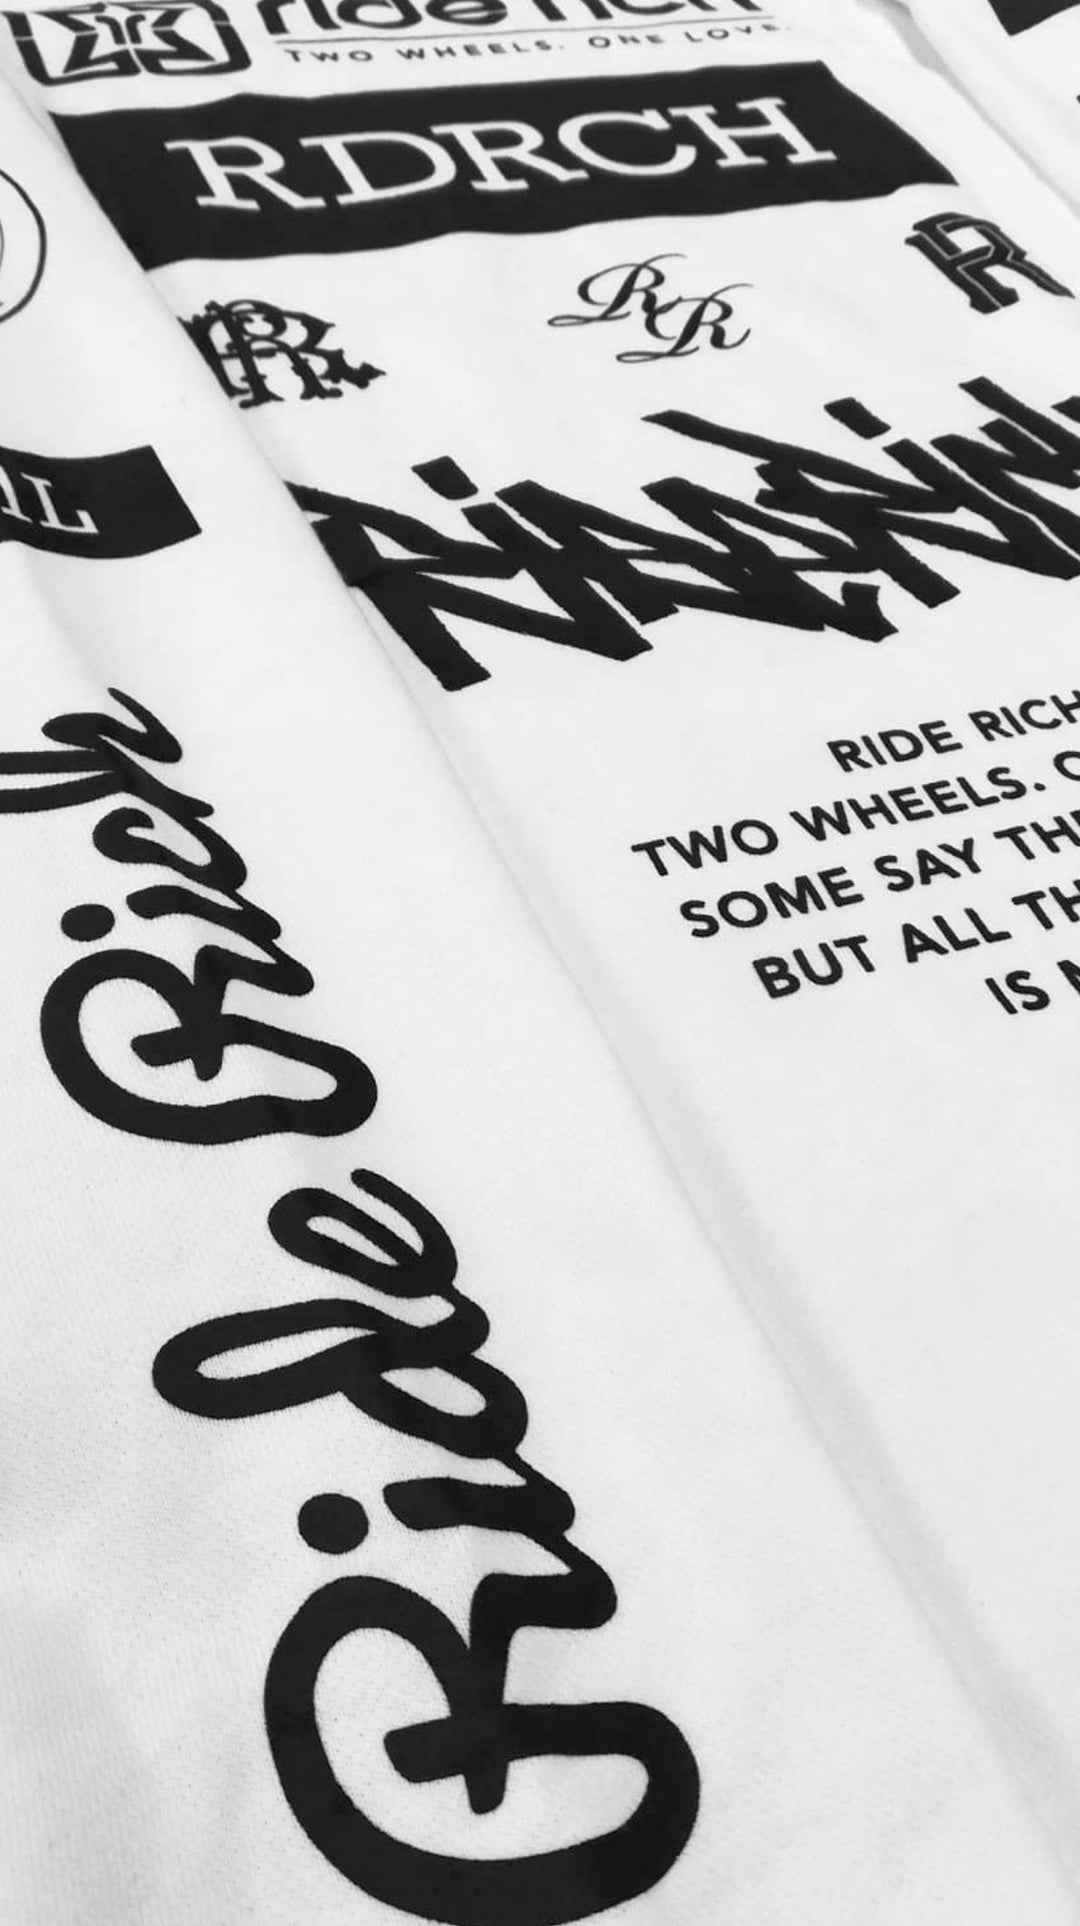 ride rich
TWO WHEELS. ONE LOVE.
RDRCH
RR
R
IL
RIDE RICH
TWO WHEELS. O
SOME SAY TH
BUT ALL TH
IS
Ride Rich